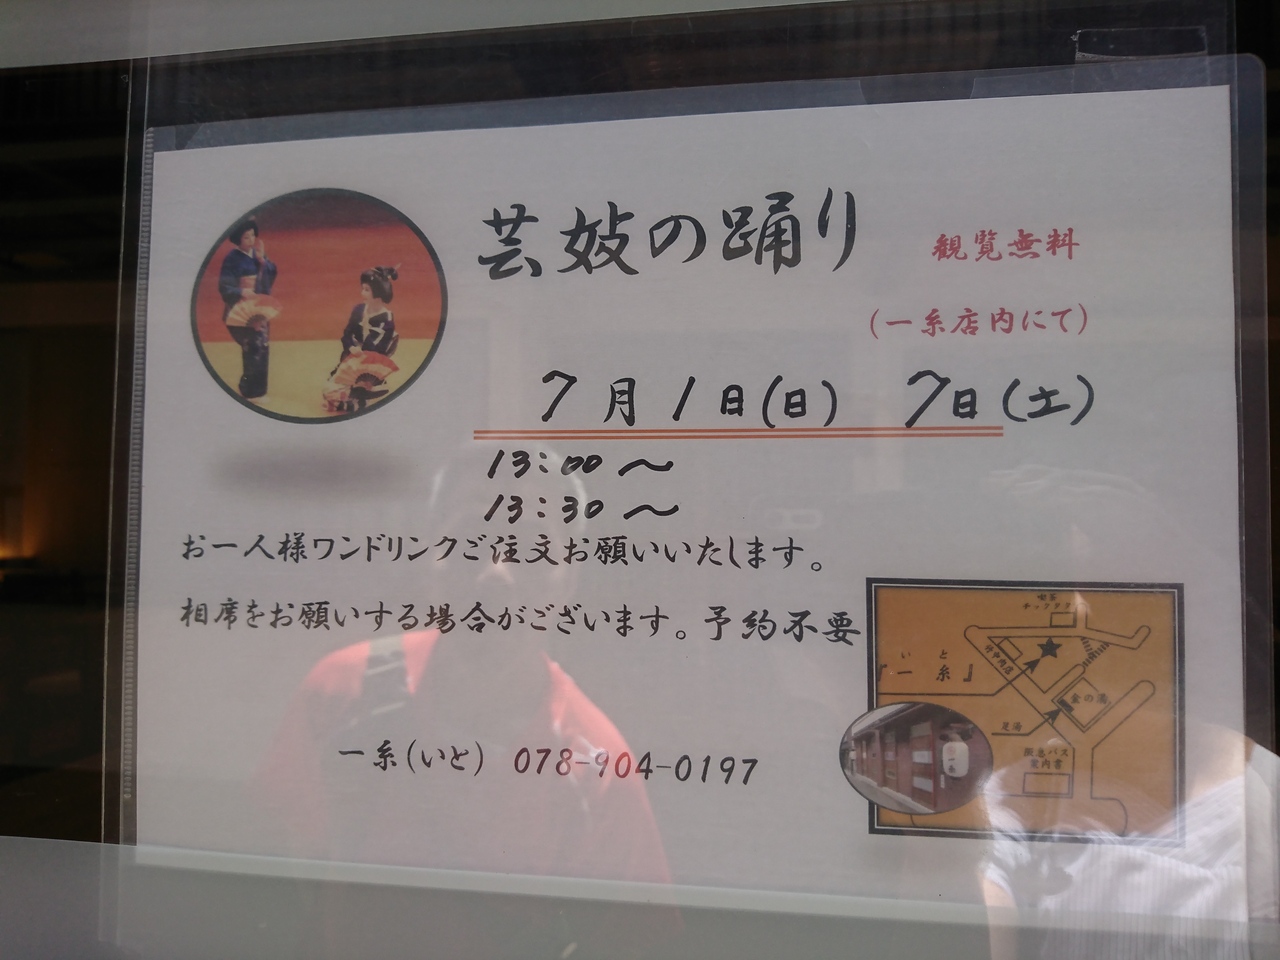 芸妓の踊り
観覧無料
(一糸店内にて)
7月1日(日) 7日(土)
13:00〜
13:30〜
お一人様ワンドリンクご注文お願いいたします。
相席をお願いする場合がございます。予約不要
一糸(いと) 078-904-0197
喫茶
チックタック
いと
『一糸』
金の湯
足湯
阪急バス
案内書
一糸